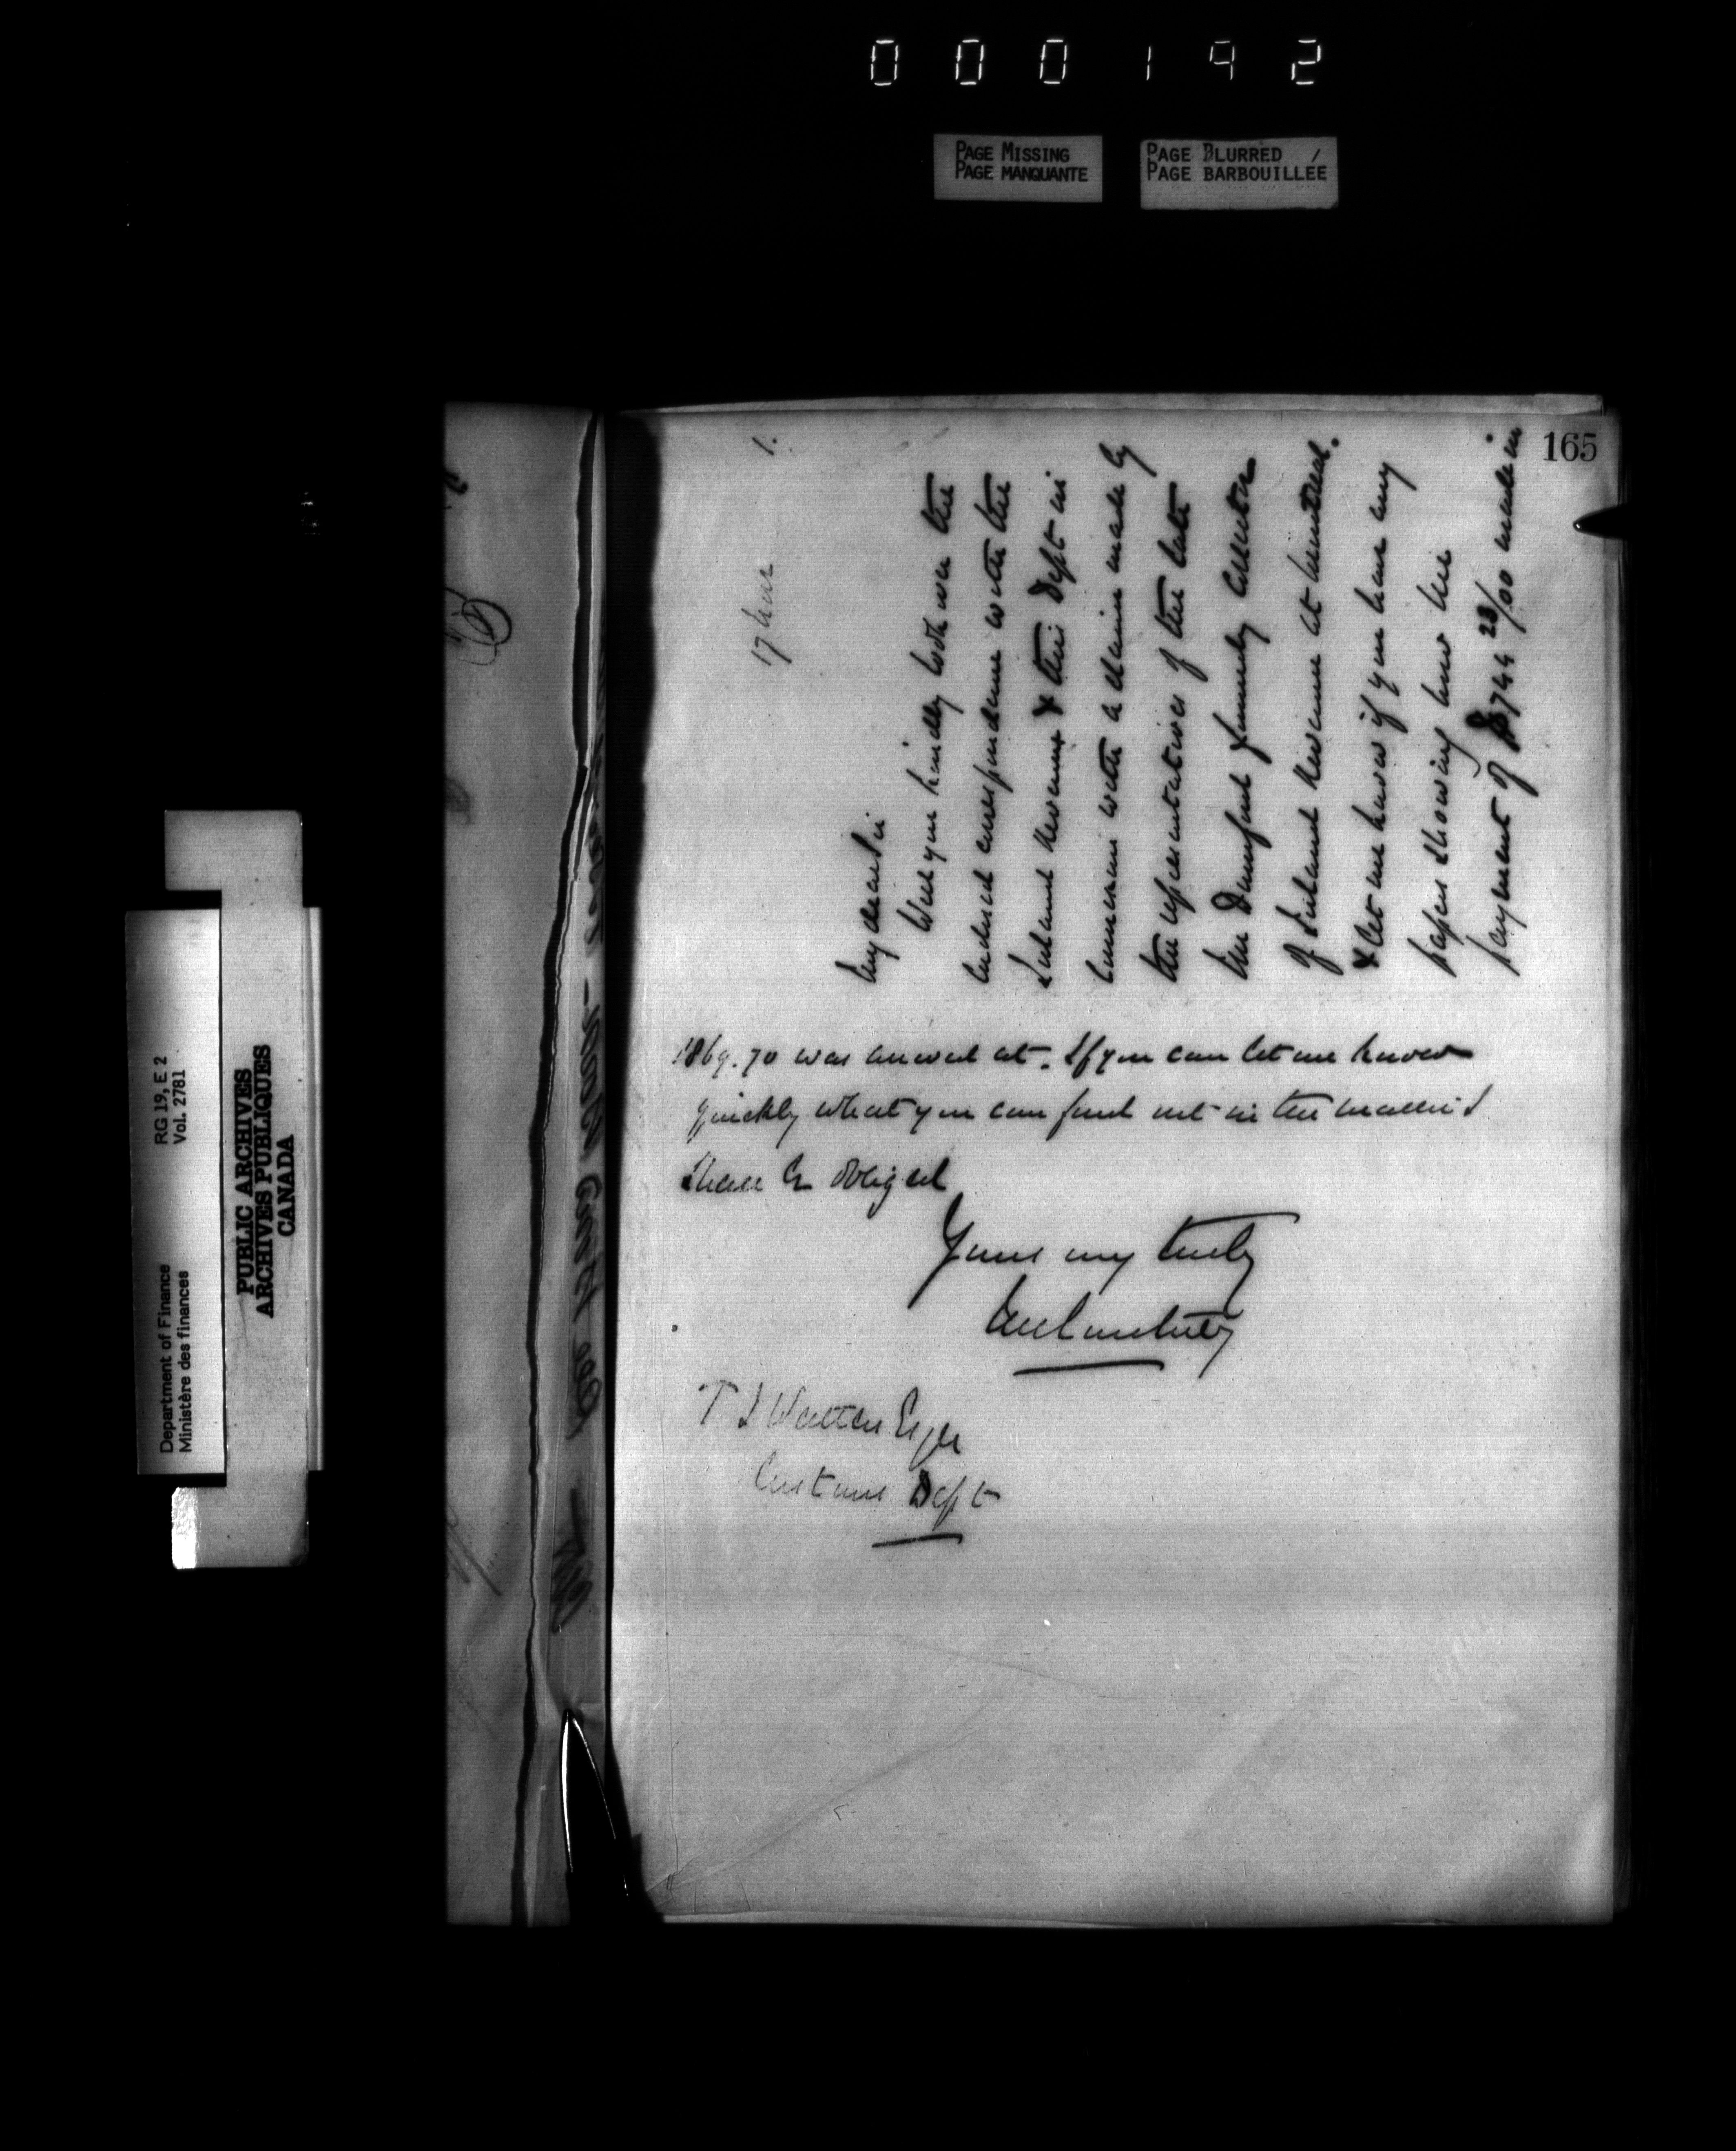 000192
PAGE MISSING
PAGE MANQUANTE
PAGE BLURRED
PAGE BARBOUILLÉE
165
17
1.
My dear Sir
Will you kindly look over the
enclosed correspondence with the
Inland Revenue & this Dept in
connexion with a claim made by
the representatives of the late
Mr Durnford formerly Collector
of Inland Revenue at Montreal.
& let me know if you have any
papers showing how the
payment of $744 28/00 made in
1869.70 was arrived at. If you can let me know
quickly what you can find out in the matter I
shall be obliged
Yours very truly
T J Watters Esqre
Customs Dept
Department of Finance
Ministère des finances
RG 19, E 2
Vol. 2781
PUBLIC ARCHIVES
ARCHIVES PUBLIQUES
CANADA